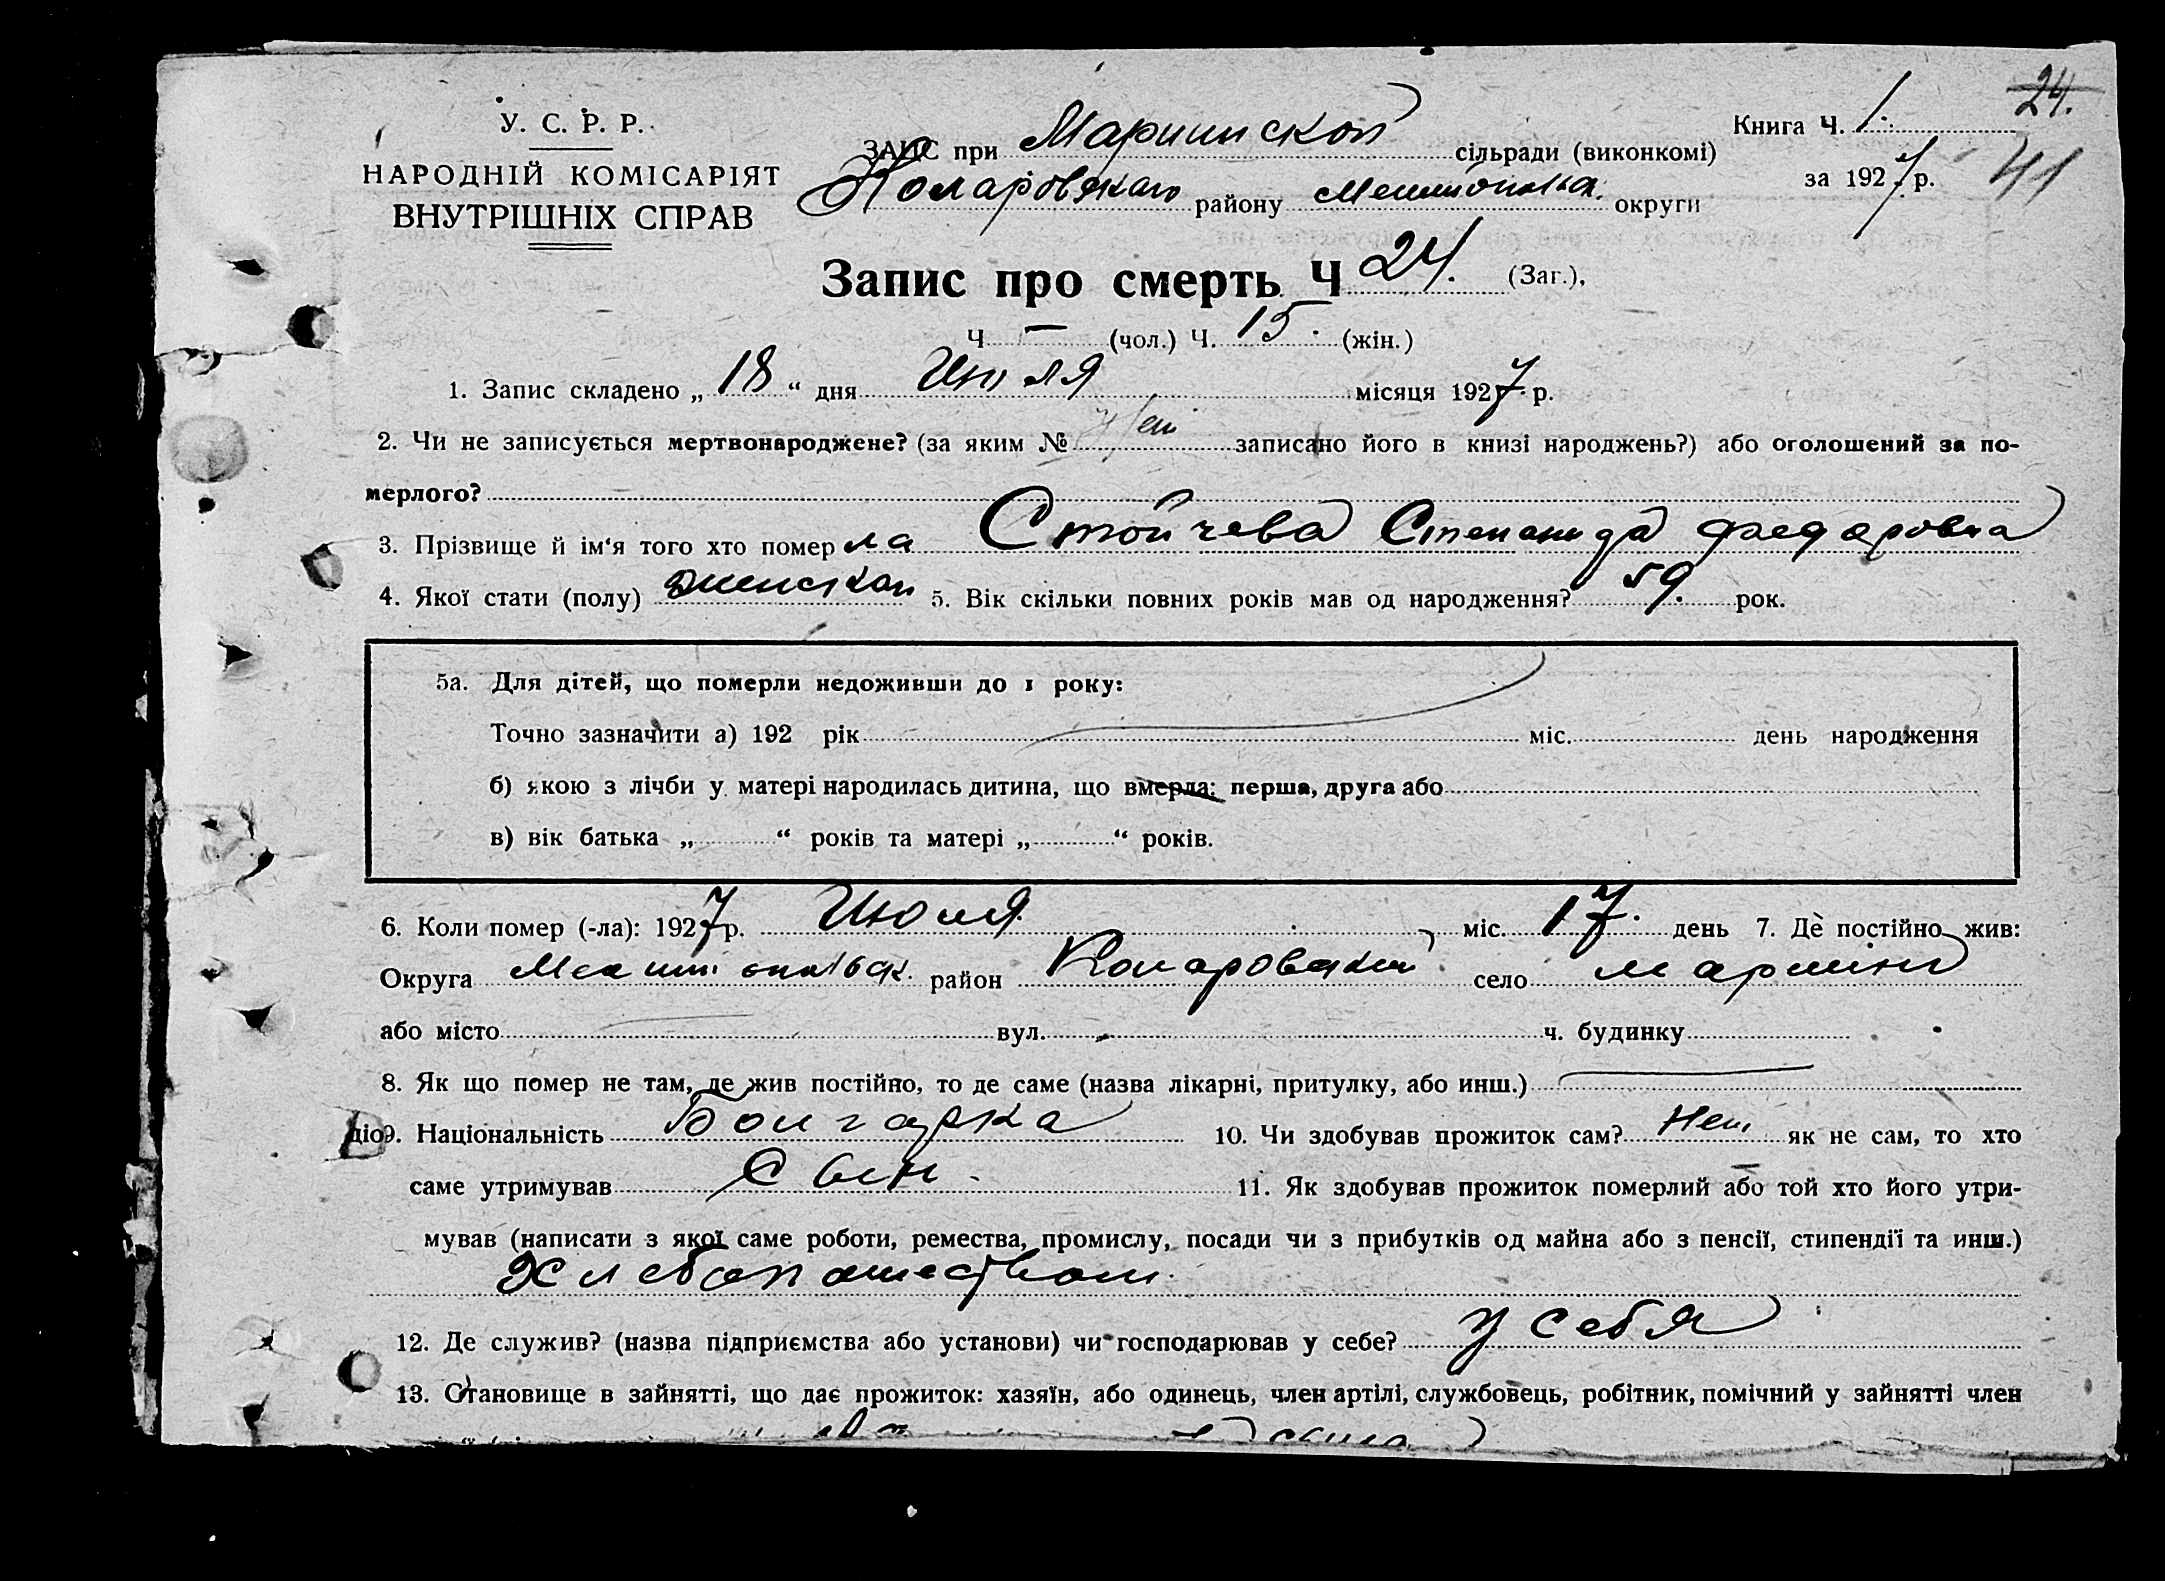 24.
У. С. Р. Р.
НАРОДНІЙ КОМІСАРІЯТ
ВНУТРІШНІХ СПРАВ
ЗАГС при Мариинской сільради (виконкомі)
Коларовского району Мелитопольск. округи
Книга Ч. 1.
за 1927 р.
41
Запис про смерть Ч 24. (Заг.),
Ч — (чол.) Ч. 15. (жін.)
1. Запис складено „ 18 “ дня Июля місяця 1927 р.
2. Чи не записується мертвонароджене? (за яким № Нет записано його в книзі народжень?) або оголошений за по-
мерлого?
3. Прізвище й ім'я того хто помер ла Стойчева Степанида Федаровна
4. Якої стати (полу) женской 5. Вік скільки повних років мав од народження? 59. рок.
5а. Для дітей, що померли недоживши до 1 року:
Точно зазначити а) 192 рік міс. день народження
б) якою з лічби у матері народилась дитина, що вмерла: перша, друга або
в) вік батька „ “ років та матері „ “ років.
6. Коли помер (-ла): 1927 р. Июля міс. 17. день 7. Де постійно жив:
Округа Мелитопольск. район Коларовский село Марино
або місто вул. ч. будинку
8. Як що помер не там, де жив постійно, то де саме (назва лікарні, притулку, або инш.)
діо9. Національність Болгарка 10. Чи здобував прожиток сам? Нет як не сам, то хто
саме утримував Сын. 11. Як здобував прожиток померлий або той хто його утри-
мував (написати з якої саме роботи, ремества, промислу, посади чи з прибутків од майна або з пенсії, стипендії та инш.)
Хлебопашеством.
12. Де служив? (назва підприємства або установи) чи господарював у себе? У себя
13. Становище в зайнятті, що дає прожиток: хазяїн, або одинець, член артілі, службовець, робітник, помічний у зайнятті член